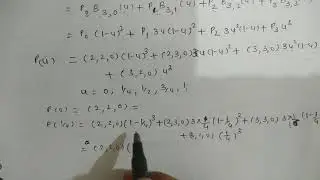 = P₀ B₃,₀(u) + P₁ B₃,₁(u) + P₂ B₃,₂(u) +
= P₀ (1-u)³ + P₁ 3u(1-u)² + P₂ 3u²(1-u) + P₃ u³
P(u) = (2,2,0)(1-u)³ + (2,3,0)3u(1-u)² + (3,3,0)3u²(1-u)
+ (3,2,0) u³
u = 0, 1/4, 1/2, 3/4, 1
P(0) = (2,2,0) =
P(1/4) = (2,2,0)(1-1/4)³ + (2,3,0) 3×1/4 (1-1/4)² + (3,3,0) 3×
+ 3,2,0) (1/4)³
= (2,2,0)(